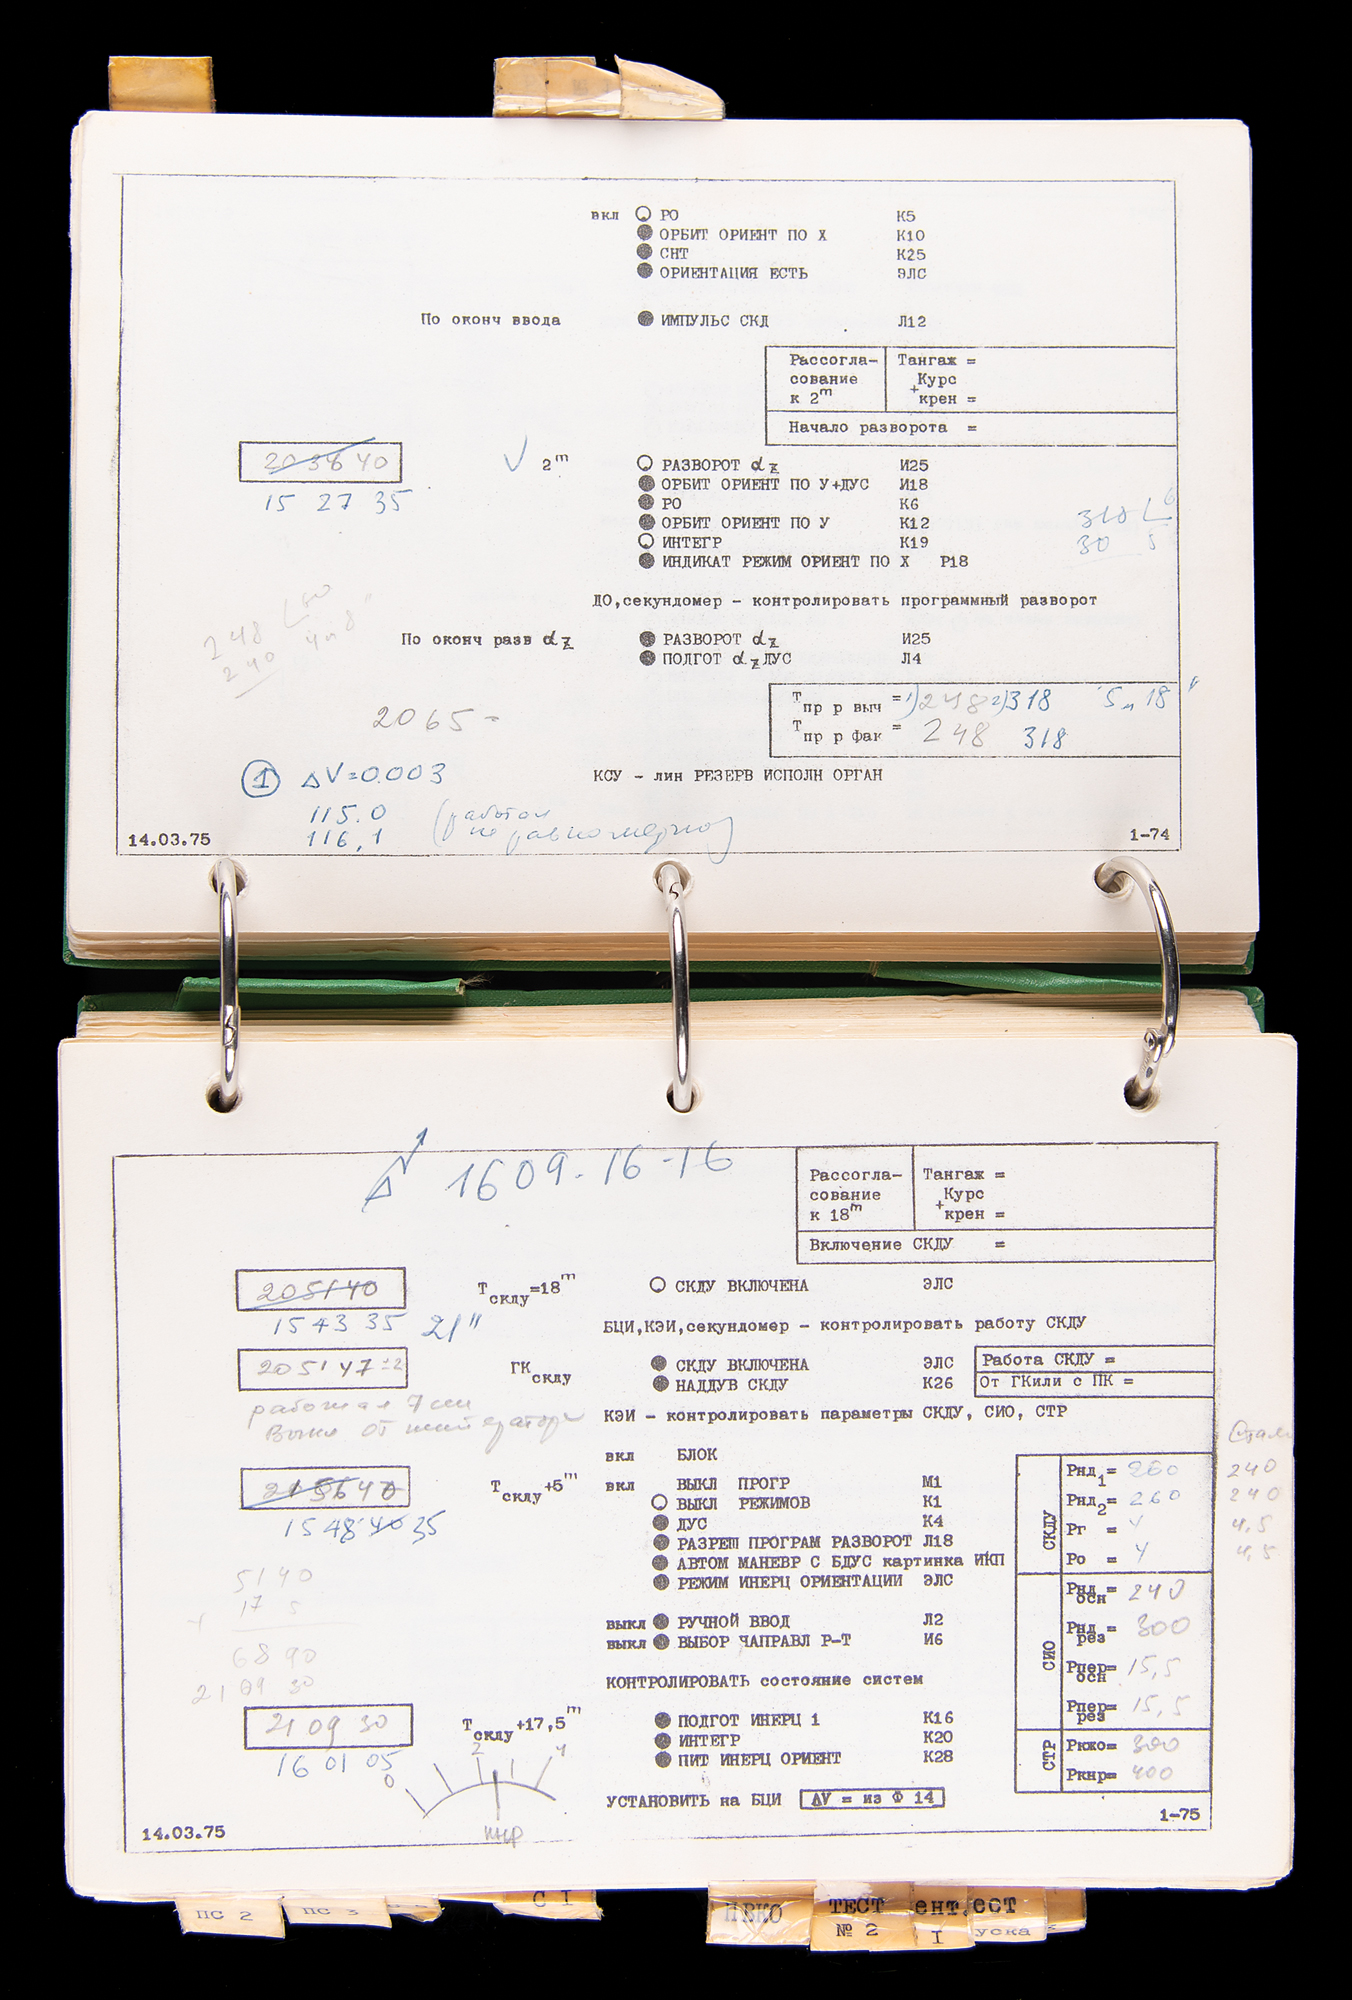 вкл ○ РО К5
● ОРБИТ ОРИЕНТ ПО X К10
● СНТ К25
● ОРИЕНТАЦИЯ ЕСТЬ ЭЛС
По оконч ввода ● ИМПУЛЬС СКД Л12
Рассогла- Тангаж =
сование Курс
к 2m +крен =
Начало разворота =
203640 √ 2m ○ РАЗВОРОТ αz И25
15 27 35 ● ОРБИТ ОРИЕНТ ПО У+ДУС И18
● РО К6
● ОРБИТ ОРИЕНТ ПО У К12 318
○ ИНТЕГР К19 30 5
● ИНДИКАТ РЕЖИМ ОРИЕНТ ПО X Р18
ДО,секундомер – контролировать программный разворот
248
240
По оконч разв αz ● РАЗВОРОТ αz И25
● ПОДГОТ αz ДУС Л4
Тпр р выч = 1)248 2)318 5м 18"
2065-
Тпр р фак = 248 318
① ΔV=0.003 КСУ – лин РЕЗЕРВ ИСПОЛН ОРГАН
115.0 (работал
116,1 неравномерно)
14.03.75 1-74
1609-16-16
Рассогла- Тангаж =
сование Курс
к 18m +крен =
Включение СКДУ =
205140 Тскду=18m ○ СКДУ ВКЛЮЧЕНА ЭЛС
15 43 35 21" БЦИ,КЭИ,секундомер – контролировать работу СКДУ
205147±2 ГКскду ● СКДУ ВКЛЮЧЕНА ЭЛС Работа СКДУ =
● НАДДУВ СКДУ К26 От ГКили с ПК =
работал 7 сек
Выкл от интегратора КЭИ – контролировать параметры СКДУ, СИО, СТР
вкл БЛОК
215640 Тскду+5m вкл ВЫКЛ ПРОГР М1
○ ВЫКЛ РЕЖИМОВ К1
15 48 40 35 ● ДУС К4
● РАЗРЕШ ПРОГРАМ РАЗВОРОТ Л18
● АВТОМ МАНЕВР С БДУС картинка ИКП
● РЕЖИМ ИНЕРЦ ОРИЕНТАЦИИ ЭЛС
выкл ● РУЧНОЙ ВВОД Л2
выкл ● ВЫБОР НАПРАВЛ Р-Т И6
КОНТРОЛИРОВАТЬ состояние систем
5140
+ 17 5
6890
2109 30
Стали
СКДУ Рнд1= 260 240
Рнд2= 260 240
Рг = 4 4,5
Ро = 4 4,5
СИО Рнд осн = 240
Рнд рез = 300
Рпер осн = 15,5
Рпер рез = 15,5
СТР Ркжо= 300
Ркнр= 400
21 09 30 Тскду+17,5m ● ПОДГОТ ИНЕРЦ 1 К16
● ИНТЕГР К20
16 01 05 ● ПИТ ИНЕРЦ ОРИЕНТ К28
0 2 4
КНР
УСТАНОВИТЬ на БЦИ ΔV = из Ф 14
14.03.75 1-75
ПС 2 ПС 3 С I ПВКО ТЕСТ ент,ест
№ 2 I уска